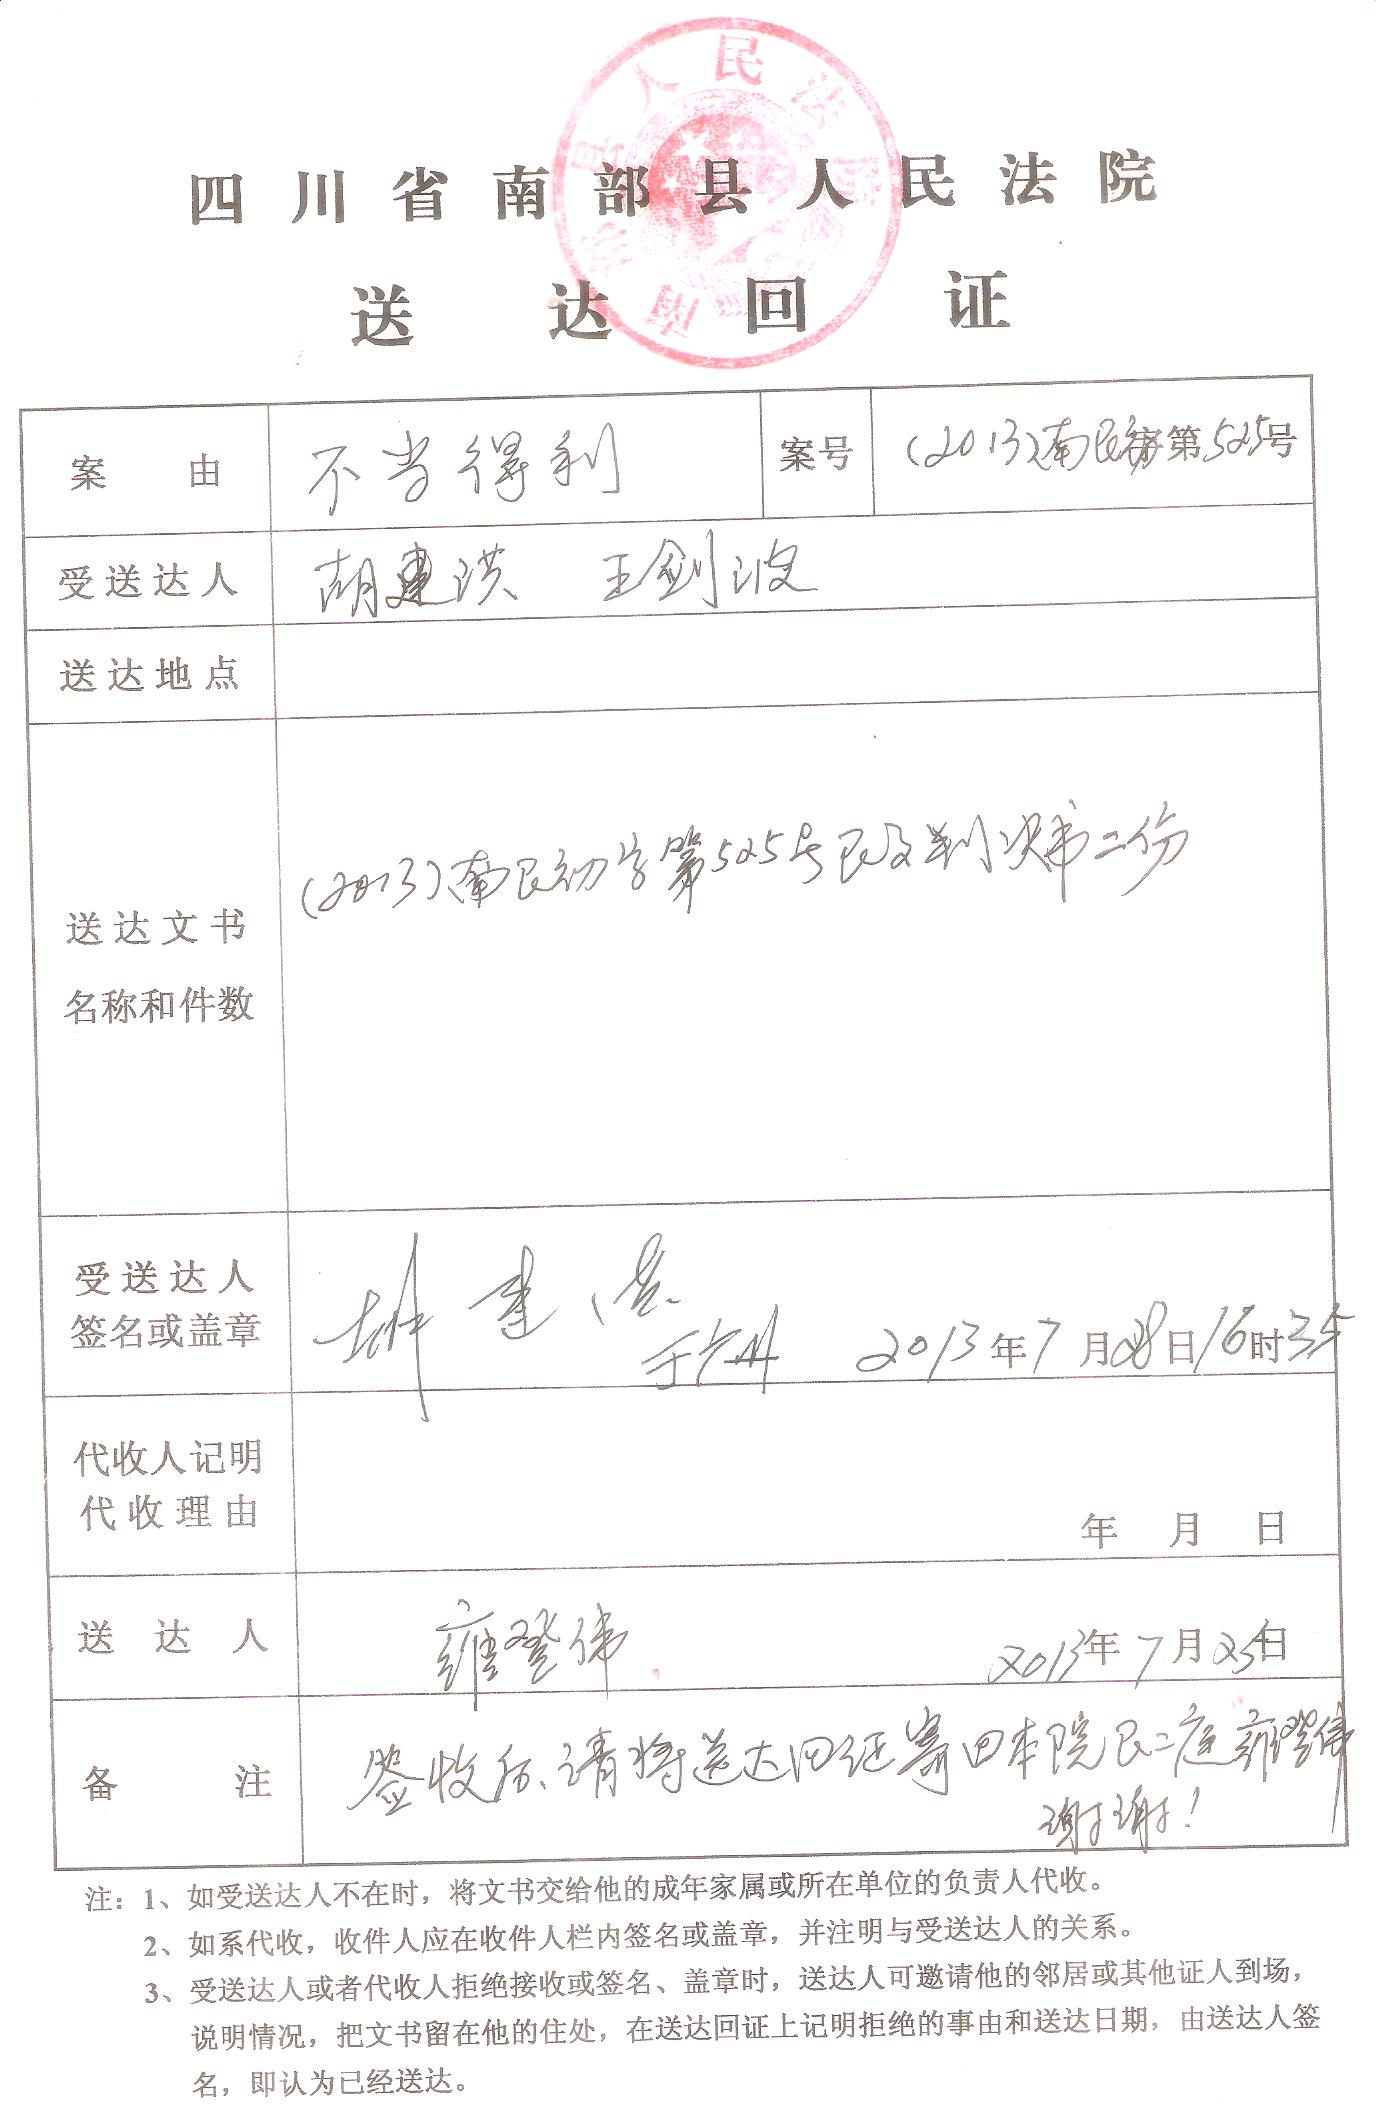 南部县人民法院
四川省南部县人民法院
送达回证
案由 不当得利 案号 (2013)南民初字第525号
受送达人 胡建洪 王剑波
送达地点
(2013)南民初字第525号民事判决书二份
送达文书
名称和件数
受送达人
签名或盖章 2013年7月28日16时35
代收人记明
代收理由
年 月 日
送达人 雍登伟 2013年7月25日
签收后、请将送达回证寄回本院民二庭雍登伟
备注
谢谢!
注：1、如受送达人不在时，将文书交给他的成年家属或所在单位的负责人代收。
2、如系代收，收件人应在收件人栏内签名或盖章，并注明与受送达人的关系。
3、受送达人或者代收人拒绝接收或签名、盖章时，送达人可邀请他的邻居或其他证人到场，
说明情况，把文书留在他的住处，在送达回证上记明拒绝的事由和送达日期，由送达人签
名，即认为已经送达。